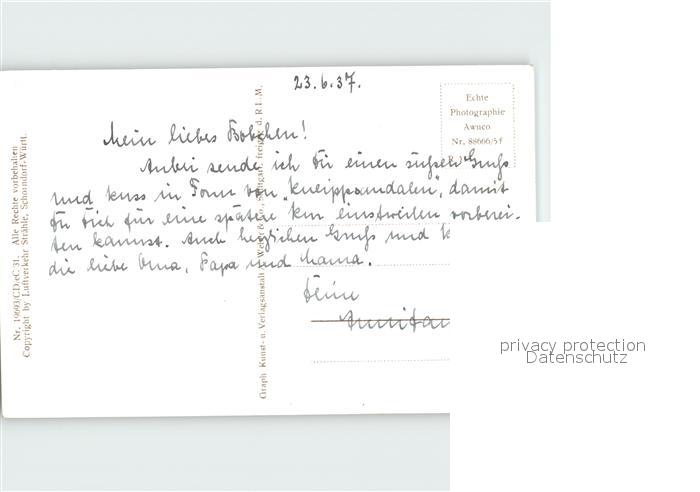 23.6.37.
Echte
Photographie
Awuco
Nr. 88666/5f
Mein liebes Bobchen!
Anbei sende ich Dir einen süßen Gruß
und Kuss in Form von "Kneippsandalen", damit
Du Dich für eine spätere Kur einstweilen vorberei-
ten kannst. Auch herzlichen Gruß und K
die liebe Oma, Papa und Mama.
Deine
Nr. 19693/CD/eC 31. Alle Rechte vorbehalten
Copyright by Luftverkehr Strähle, Schorndorf-Württ.
Graph. Kunst- u. Verlagsanstalt A. Weber & Co., Stuttgart, freigeg. d. R.L.M.
privacy protection
Datenschutz